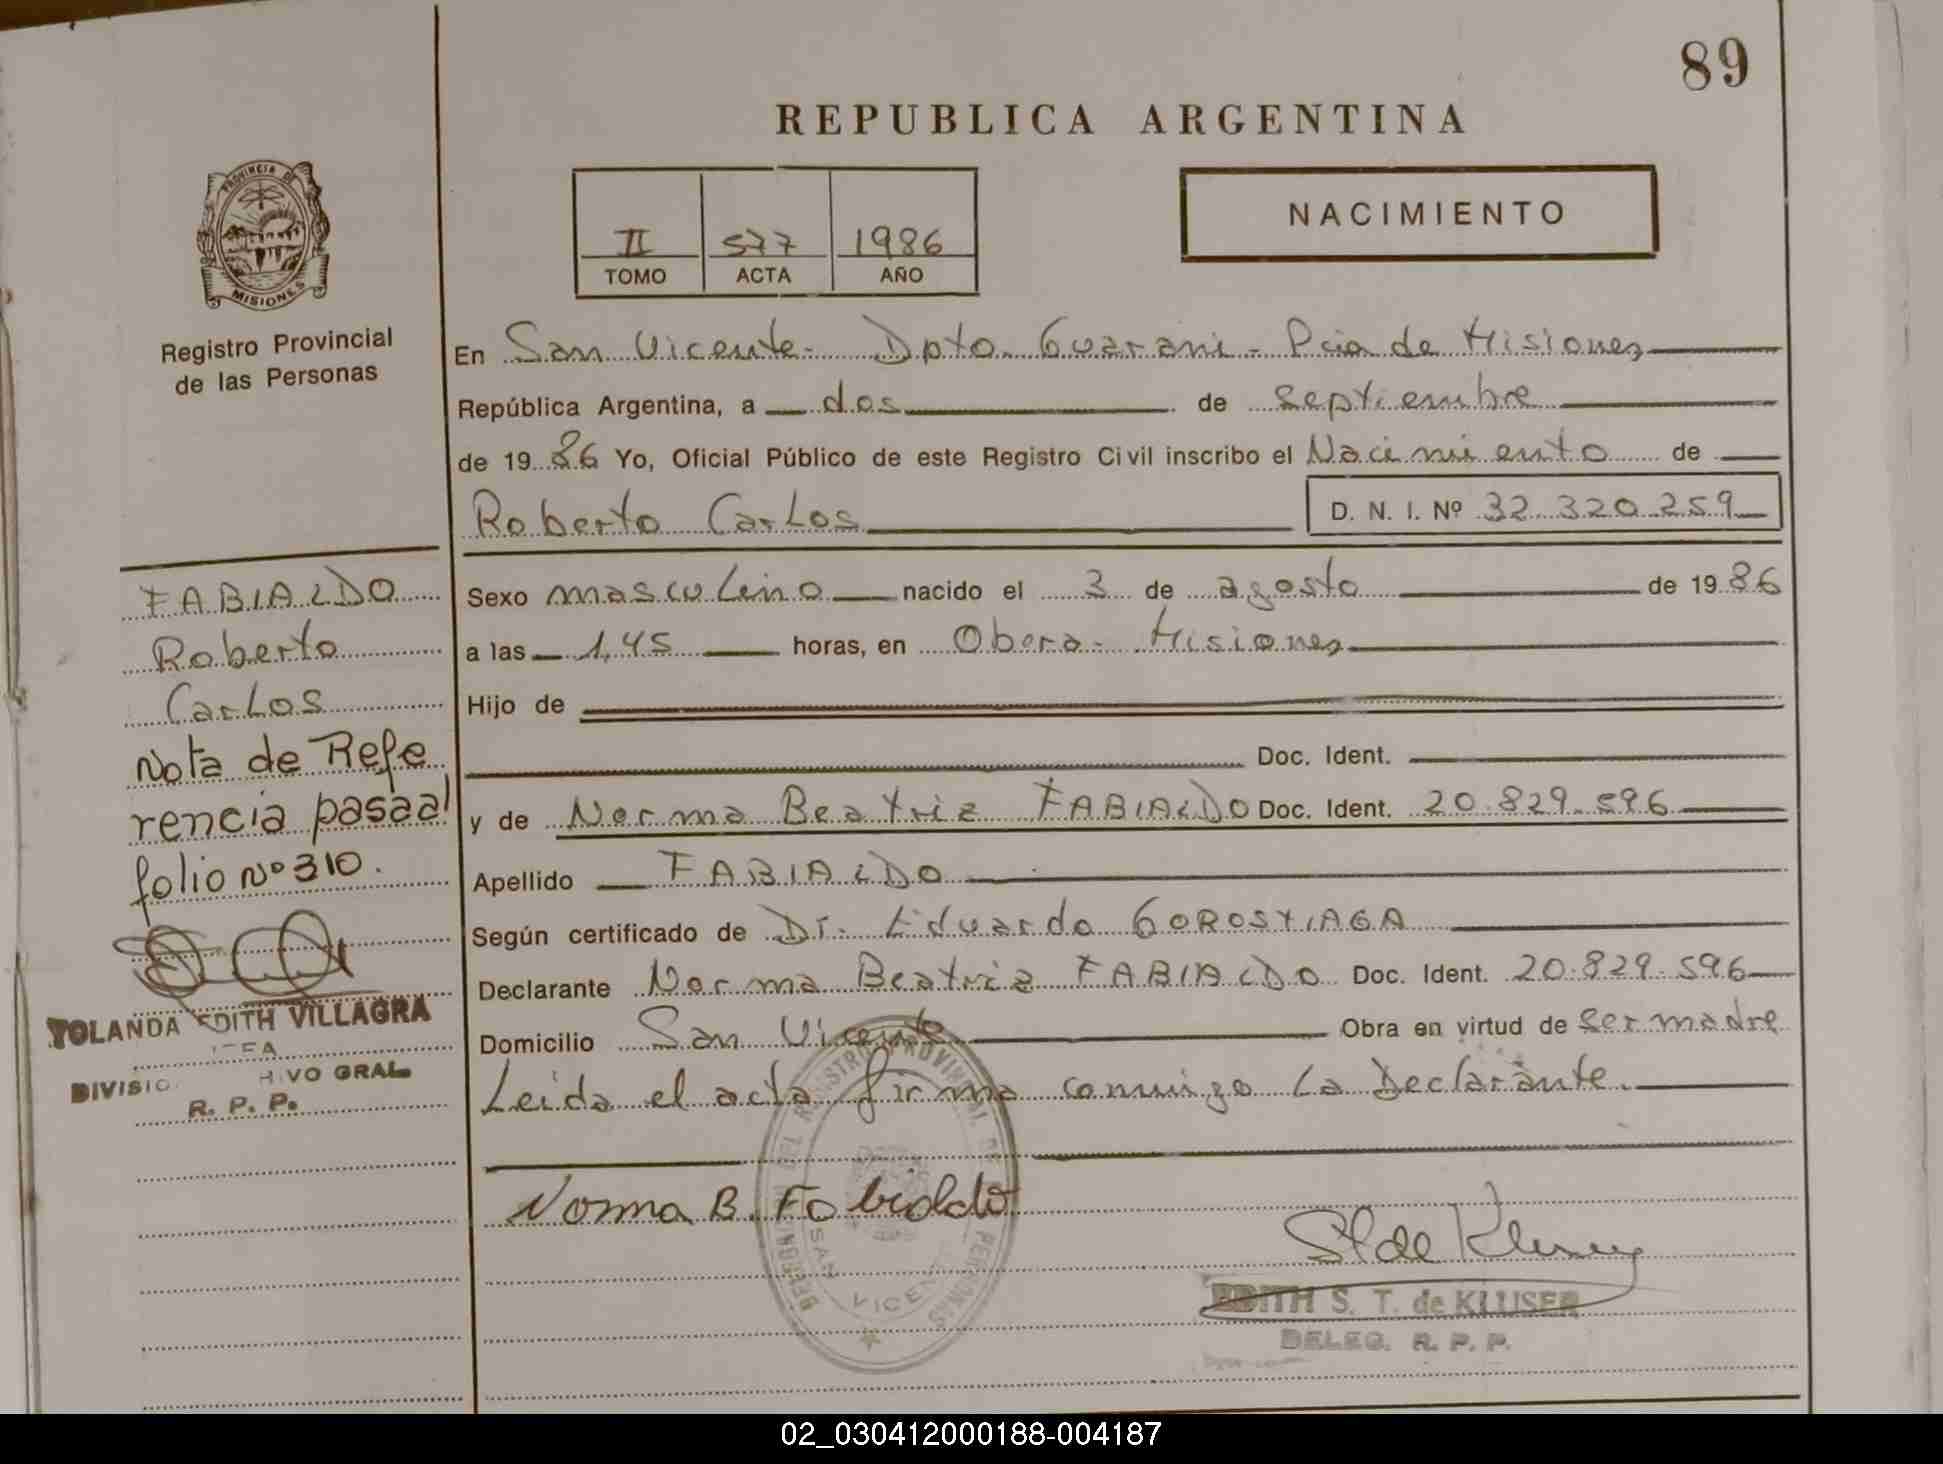 89
REPUBLICA ARGENTINA
PROVINCIA DE
MISIONES
Registro Provincial
de las Personas
II 577 1986
TOMO ACTA AÑO
NACIMIENTO
En San Vicente - Dpto. Guarani - Pcia de Misiones
República Argentina, a dos de septiembre
de 1986 Yo, Oficial Público de este Registro Civil inscribo el Nacimiento de
Roberto Carlos D. N. I. Nº 32.320.259
FABIALDO
Roberto
Carlos
Nota de Refe
rencia pasa al
folio Nº 310.
YOLANDA EDITH VILLAGRA
R. P. P.
Sexo masculino nacido el 3 de agosto de 1986
a las 1,45 horas, en Obera - Misiones
Hijo de
Doc. Ident.
y de Norma Beatriz FABIALDO Doc. Ident. 20.829.596
Apellido FABIALDO
Según certificado de Dr. Eduardo GOROSTIAGA
Declarante Norma Beatriz FABIALDO Doc. Ident. 20.829.596
Domicilio San Vicente Obra en virtud de ser madre
Leida el acta firma conmigo la Declarante.
Norma B. Fabialdo
DEL REGISTRO PROVINCIAL DE
PERSONAS
SAN VICENTE
EDITH S. T. de KLUSER
DELEG. R. P. P.
02_030412000188-004187